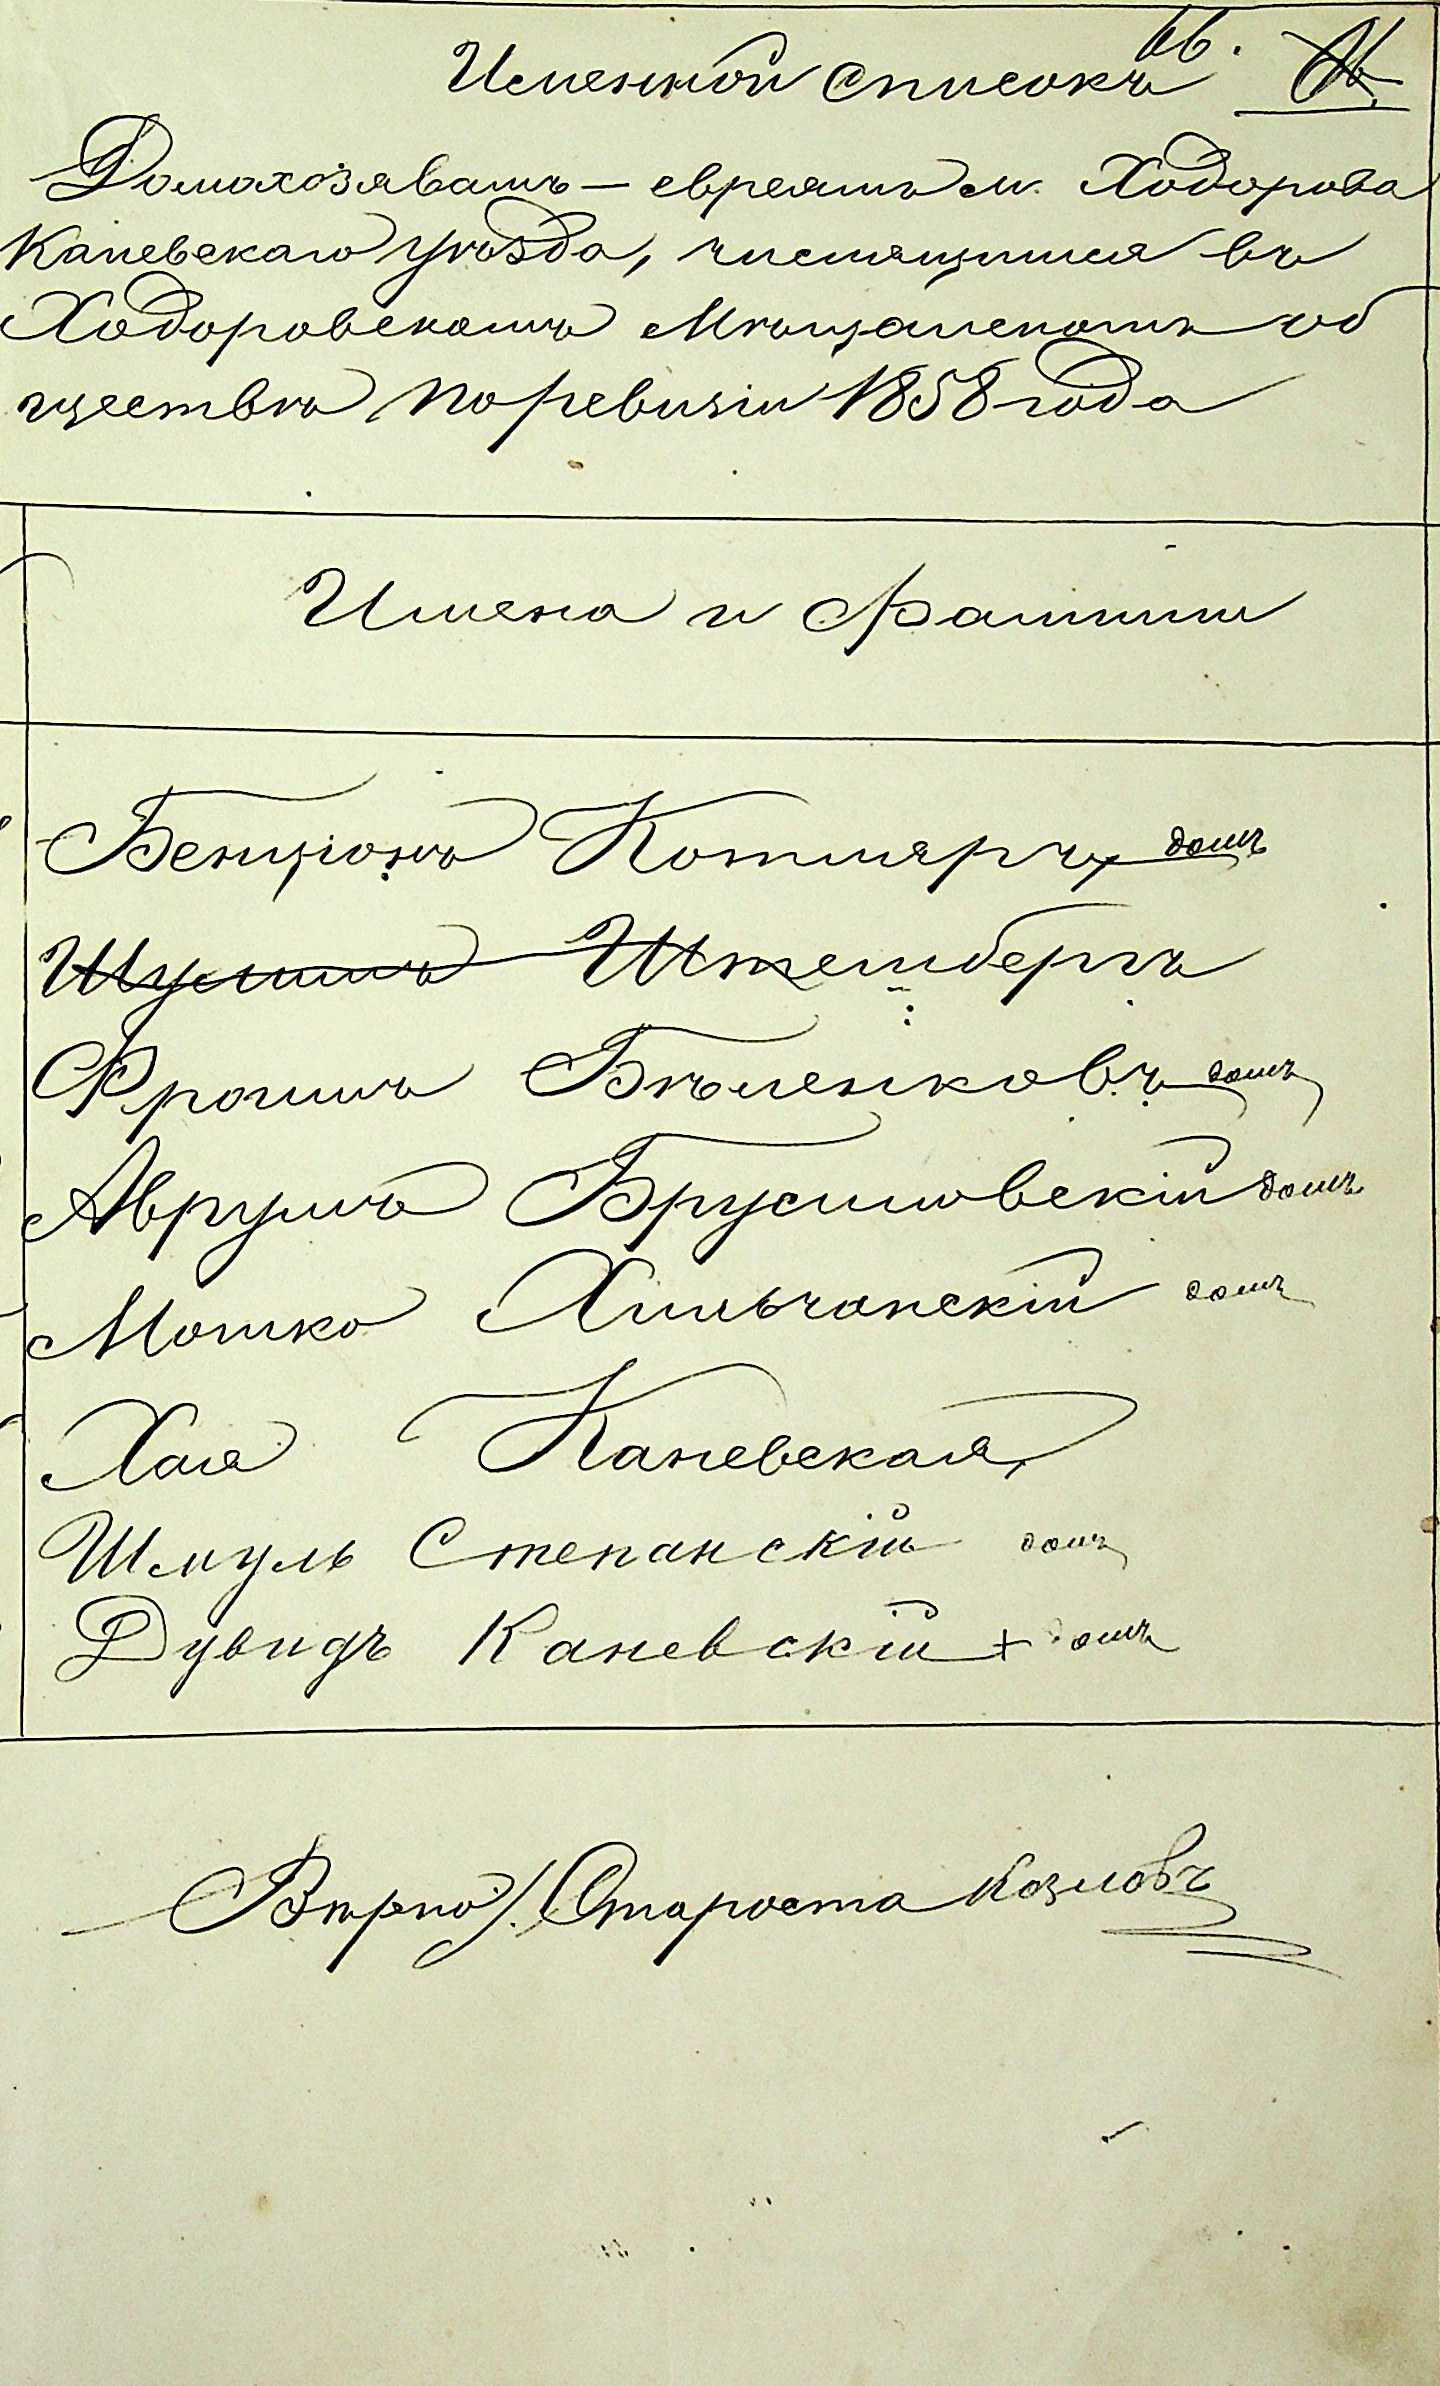 66.
Именной списокъ
Домохозяевамъ — евреямъ м. Ходорова
Каневскаго уѣзда, числящимся въ
Ходоровскомъ Мѣщанскомъ об
ществѣ по ревизіи 1858 года
Имена и Фамиліи
Бенціонъ Котляръ домъ
Шулимъ Штембергъ
Фроимъ Бѣленковъ домъ
Аврумъ Брусиловскій домъ
Мошко Хильчанскій домъ
Хая Каневская
Шмуль Степанскій домъ
Дувидъ Каневскій + домъ
Вѣрно: Староста Козловъ